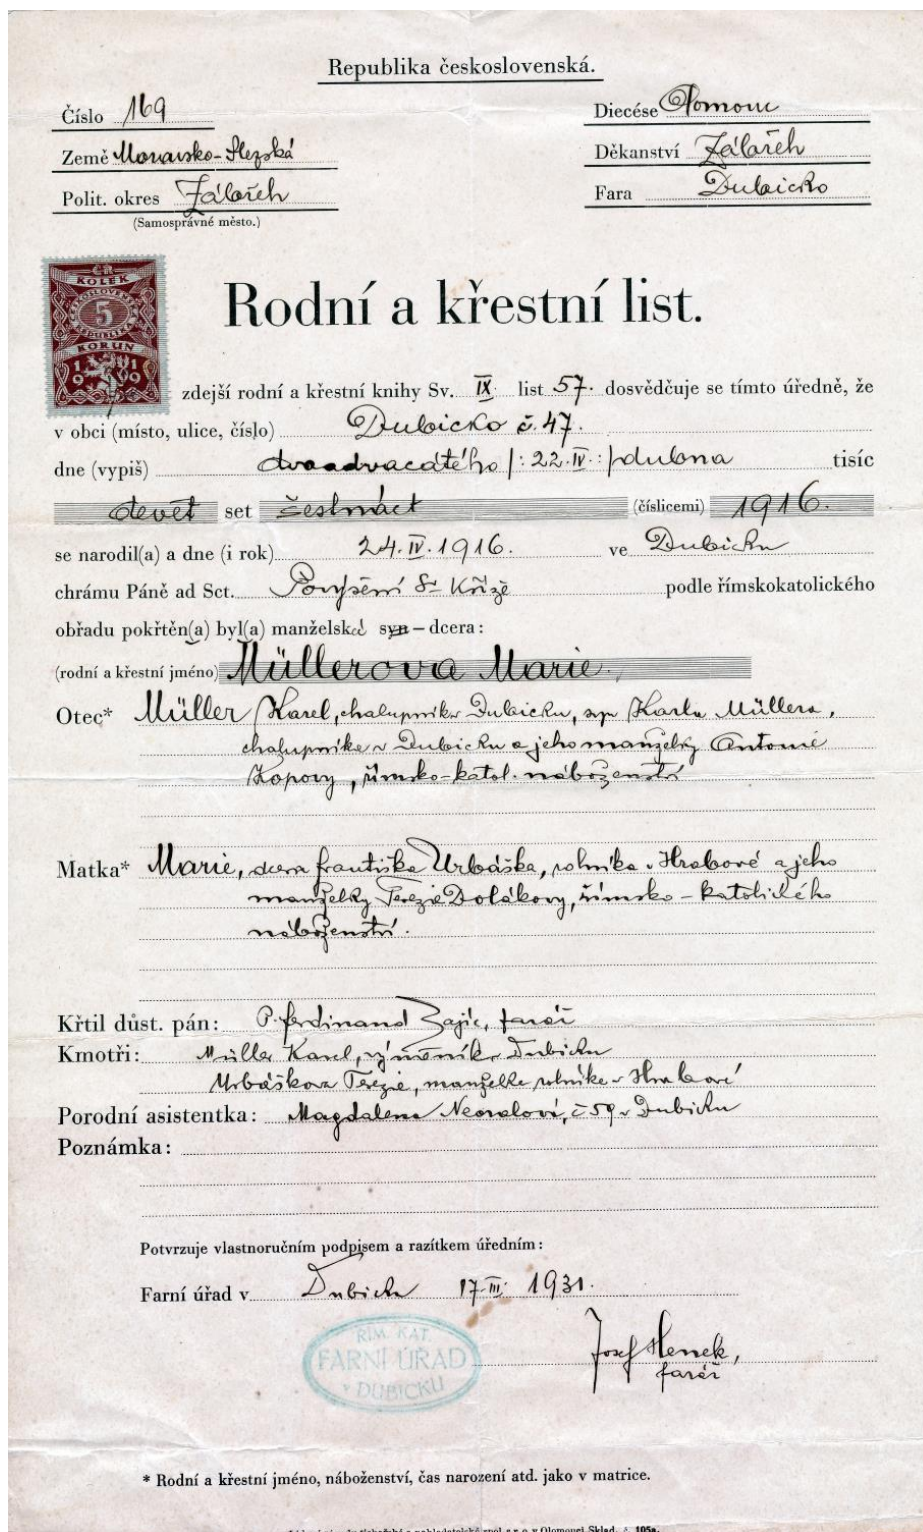 Republika československá.
Číslo 169
Diecése Olomouc
Země Moravsko-Slezská
Děkanství Zábřeh
Polit. okres Zábřeh
Fara Dubicko
(Samosprávné město.)
ČR
KOLEK
5
KORUN
1919
Rodní a křestní list.
zdejší rodní a křestní knihy Sv. IX. list 57. dosvědčuje se tímto úředně, že
v obci (místo, ulice, číslo) Dubicko č. 47.
dne (vypiš) dvaadvacátého /: 22. IV. :/ dubna tisíc
devět set šestnáct (číslicemi) 1916.
se narodil(a) a dne (i rok) 24. IV. 1916. ve Dubicku
chrámu Páně ad Sct. Povýšení Sv. Kříže podle římskokatolického
obřadu pokřtěn(a) byl(a) manželská syn – dcera:
(rodní a křestní jméno) Müllerova Marie.
Otec* Müller Karel, chalupník v Dubicku, syn Karla Müllera,
chalupníka v Dubicku a jeho manželky Antonie
Kopovy, římsko-katol. náboženství
Matka* Marie, dcera Františka Urbáška, rolníka v Hrabové a jeho
manželky Terezie Dolákovy, římsko-katolického
náboženství.
Křtil důst. pán: P. Ferdinand Zajíc, farář
Kmotři: Müller Karel, výměník v Dubicku
Urbáškova Terezie, manželka rolníka v Hrabové
Porodní asistentka: Magdalena Neoralová, č 59 v Dubicku
Poznámka:
Potvrzuje vlastnoručním podpisem a razítkem úředním:
Farní úřad v Dubicku 17. III. 1931.
ŘÍM. KAT.
FARNÍ ÚŘAD
v DUBICKU
Josef Henek,
farář
* Rodní a křestní jméno, náboženství, čas narození atd. jako v matrice.
v Olomouci. Sklad. č. 105a.